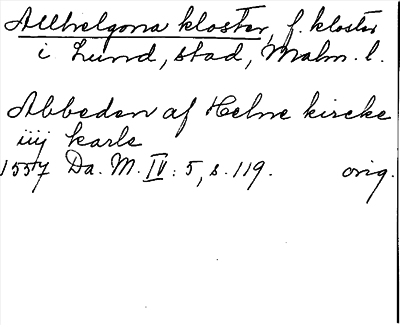 Allhelgona kloster, f. kloster
i Lund, stad, Malm. l.
Abbeden af Helne kircke
iiij karle
1557 Da. M. IV: 5, s. 119. orig.